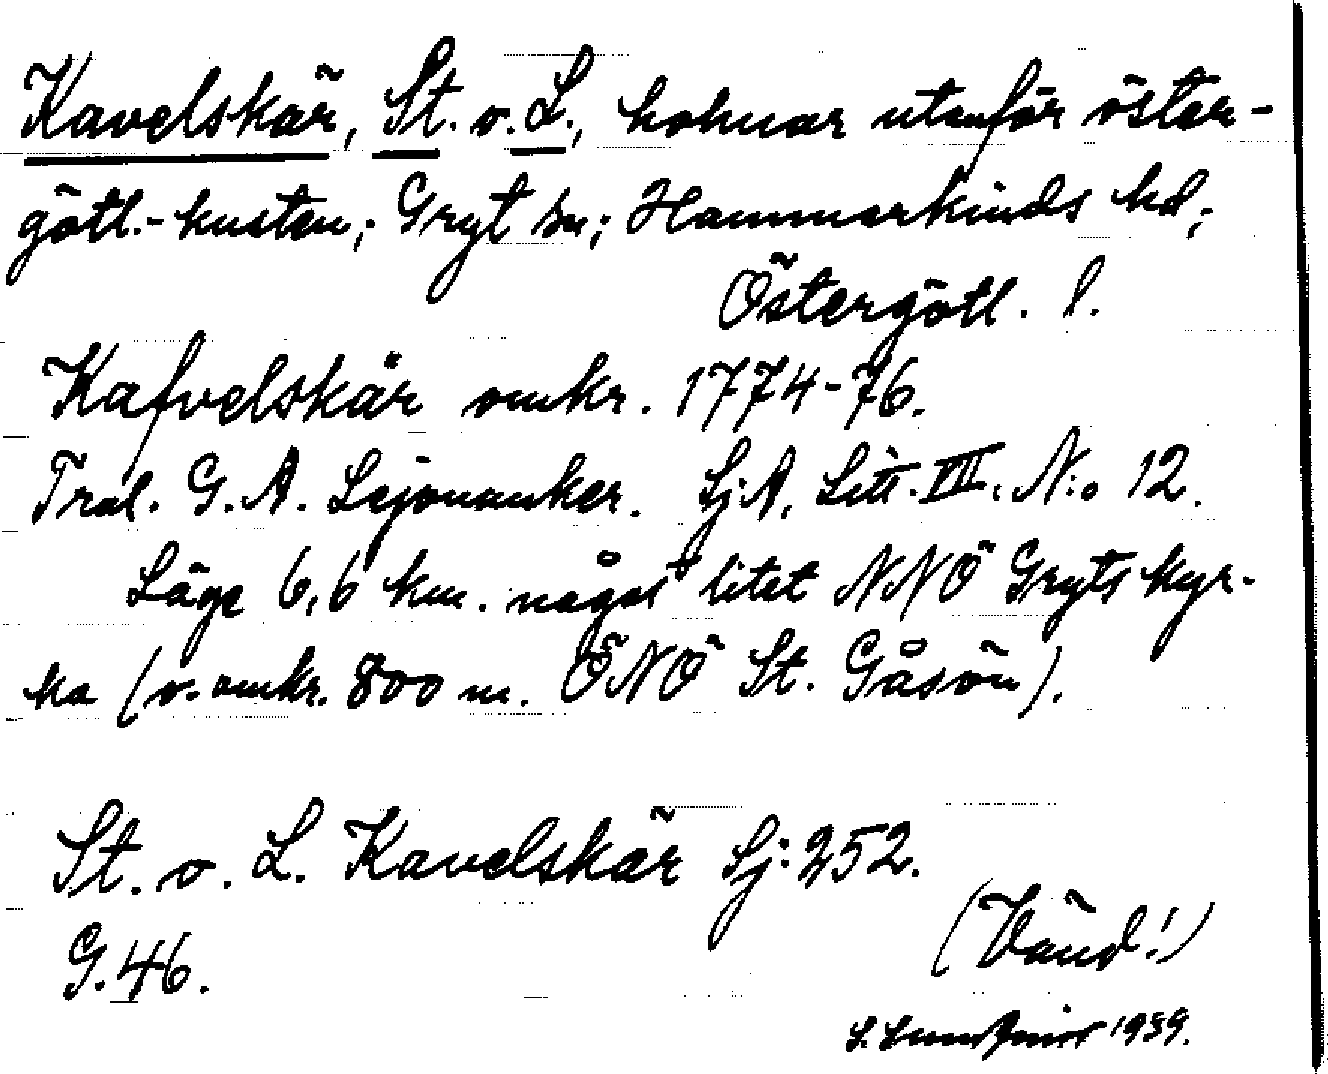 Kavelskär, St. o. L., holmar utanför öster-
götl.-kusten; Gryt sn; Hammarkinds hd;
Östergötl. l.
Kafvelskär omkr. 1774-76.
Tral. G. A. Lejonanker. Sj.A. Litt. VII. N:o 12.
Läge 6,6 km. något litet NNÖ Gryts kyr-
ka (o. omkr. 800 m. ÖNÖ St. Gåsön).
St. o. L. Kavelskär Sj: 252.
G. 46.
(Vänd!)
1939.